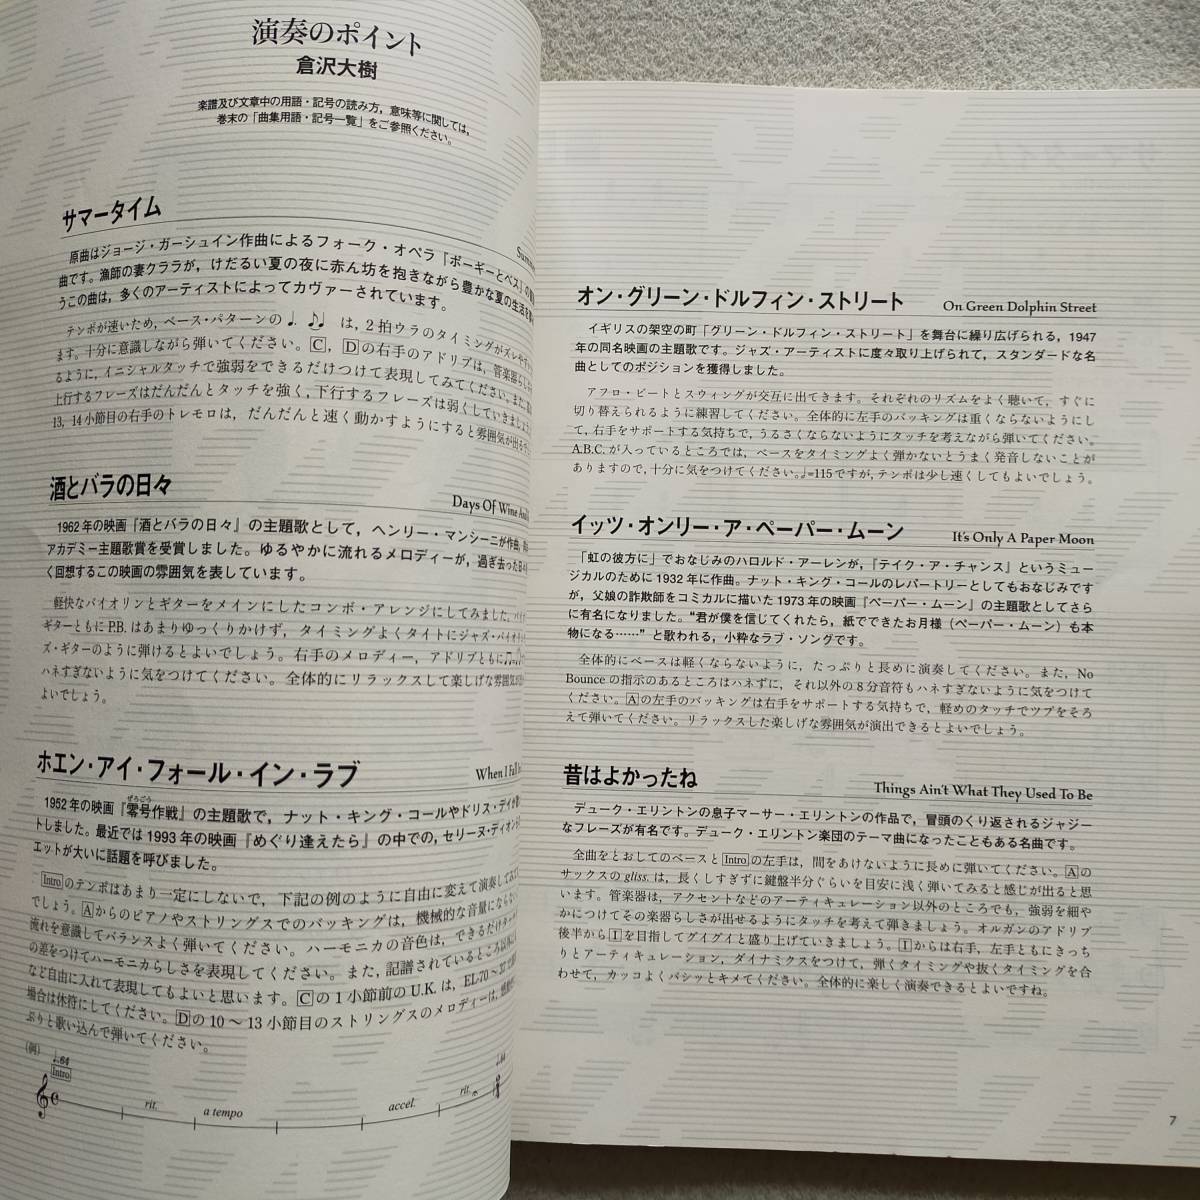 演奏のポイント
倉沢大樹
楽譜及び文章中の用語・記号の読み方,意味等に関しては,
巻末の「曲集用語・記号一覧」をご参照ください。
サマータイム
原曲はジョージ・ガーシュイン作曲によるフォーク・オペラ『ポーギーとベス』の
曲です。漁師の妻クララが,けだるい夏の夜に赤ん坊を抱きながら豊かな夏の生活を
うこの曲は,多くのアーティストによってカヴァーされています。
テンポが速いため,ベース・パターンの♩. ♪♩は,2拍ウラのタイミングがズレや
ます。十分に意識しながら弾いてください。C,Dの右手のアドリブは,管楽器らし
るように,イニシャルタッチで強弱をできるだけつけて表現してみてください。また,
上行するフレーズはだんだんとタッチを強く,下行するフレーズは弱くしていきましょ
13,14小節目の右手のトレモロは,だんだんと速く動かすようにすると雰囲気が出
酒とバラの日々
Days Of Wine And
1962年の映画『酒とバラの日々』の主題歌として,ヘンリー・マンシーニが作曲,
アカデミー主題歌賞を受賞しました。ゆるやかに流れるメロディーが,過ぎ去った日々
く回想するこの映画の雰囲気を表しています。
軽快なバイオリンとギターをメインにしたコンボ・アレンジにしてみました。
ギターともにP.B.はあまりゆっくりかけず,タイミングよくタイトにジャズ・バイオ
ズ・ギターのように弾けるとよいでしょう。右手のメロディー,アドリブともに
ハネすぎないように気をつけてください。全体的にリラックスして楽しげな雰囲気が
よいでしょう。
ホエン・アイ・フォール・イン・ラブ
When I Fall In
1952年の映画『零号作戦』の主題歌で,ナット・キング・コールやドリス・デイが
ぜろごう
トしました。最近では1993年の映画『めぐり逢えたら』の中での,セリーヌ・ディオン
エットが大いに話題を呼びました。
Introのテンポはあまり一定にしないで,下記の例のように自由に変えて演奏して
でしょう。Aからのピアノやストリングスでのバッキングは,機械的な音量になら
流れを意識してバランスよく弾いてください。ハーモニカの音色は,できるだけ
の差をつけてハーモニカらしさを表現してください。また,記譜されているところ以外
など自由に入れて表現してもよいと思います。Cの1小節前のU.K.は,EL-70～37で
場合は休符にしてください。Dの10～13小節目のストリングスのメロディーは,
ぷりと歌い込んで弾いてください。
(例)
♩.64
Intro
rit.
a tempo
accel.
rit.
オン・グリーン・ドルフィン・ストリート On Green Dolphin Street
イギリスの架空の町「グリーン・ドルフィン・ストリート」を舞台に繰り広げられる,1947
年の同名映画の主題歌です。ジャズ・アーティストに度々取り上げられて,スタンダードな名
曲としてのポジションを獲得しました。
アフロ・ビートとスウィングが交互に出てきます。それぞれのリズムをよく聴いて,すぐに
切り替えられるように練習してください。全体的に左手のバッキングは重くならないようにし
て,右手をサポートする気持ちで,うるさくならないようにタッチを考えながら弾いてください。
A.B.C.が入っているところでは,ベースをタイミングよく弾かないとうまく発音しないことが
ありますので,十分に気をつけてください。♩=115ですが,テンポは少し速くしてもよいでしょう。
イッツ・オンリー・ア・ペーパー・ムーン It's Only A Paper Moon
「虹の彼方に」でおなじみのハロルド・アーレンが,『テイク・ア・チャンス』というミュー
ジカルのために1932年に作曲。ナット・キング・コールのレパートリーとしてもおなじみです
が,父娘の詐欺師をコミカルに描いた1973年の映画『ペーパー・ムーン』の主題歌としてさら
に有名になりました。“君が僕を信じてくれたら,紙でできたお月様（ペーパー・ムーン）も本
物になる……”と歌われる,小粋なラブ・ソングです。
全体的にベースは軽くならないように,たっぷりと長めに演奏してください。また,No
Bounceの指示のあるところはハネずに,それ以外の8分音符もハネすぎないように気をつけて
ください。Aの左手のバッキングは右手をサポートする気持ちで,軽めのタッチでツブをそろ
えて弾いてください。リラックスした楽しげな雰囲気が演出できるとよいでしょう。
昔はよかったね Things Ain't What They Used To Be
デューク・エリントンの息子マーサー・エリントンの作品で,冒頭のくり返されるジャジー
なフレーズが有名です。デューク・エリントン楽団のテーマ曲になったこともある名曲です。
全曲をとおしてのベースとIntroの左手は,間をあけないように長めに弾いてください。Aの
サックスのgliss.は,長くしすぎずに鍵盤半分ぐらいを目安に浅く弾いてみると感じが出ると思
います。管楽器は,アクセントなどのアーティキュレーション以外のところでも,強弱を細や
かにつけてその楽器らしさが出せるようにタッチを考えて弾きましょう。オルガンのアドリブ
後半からIを目指してグイグイと盛り上げていきましょう。Iからは右手,左手ともにきっち
りとアーティキュレーション,ダイナミクスをつけて,弾くタイミングや抜くタイミングを合
わせて,カッコよくバシッとキメてください。全体的に楽しく演奏できるとよいですね。
7